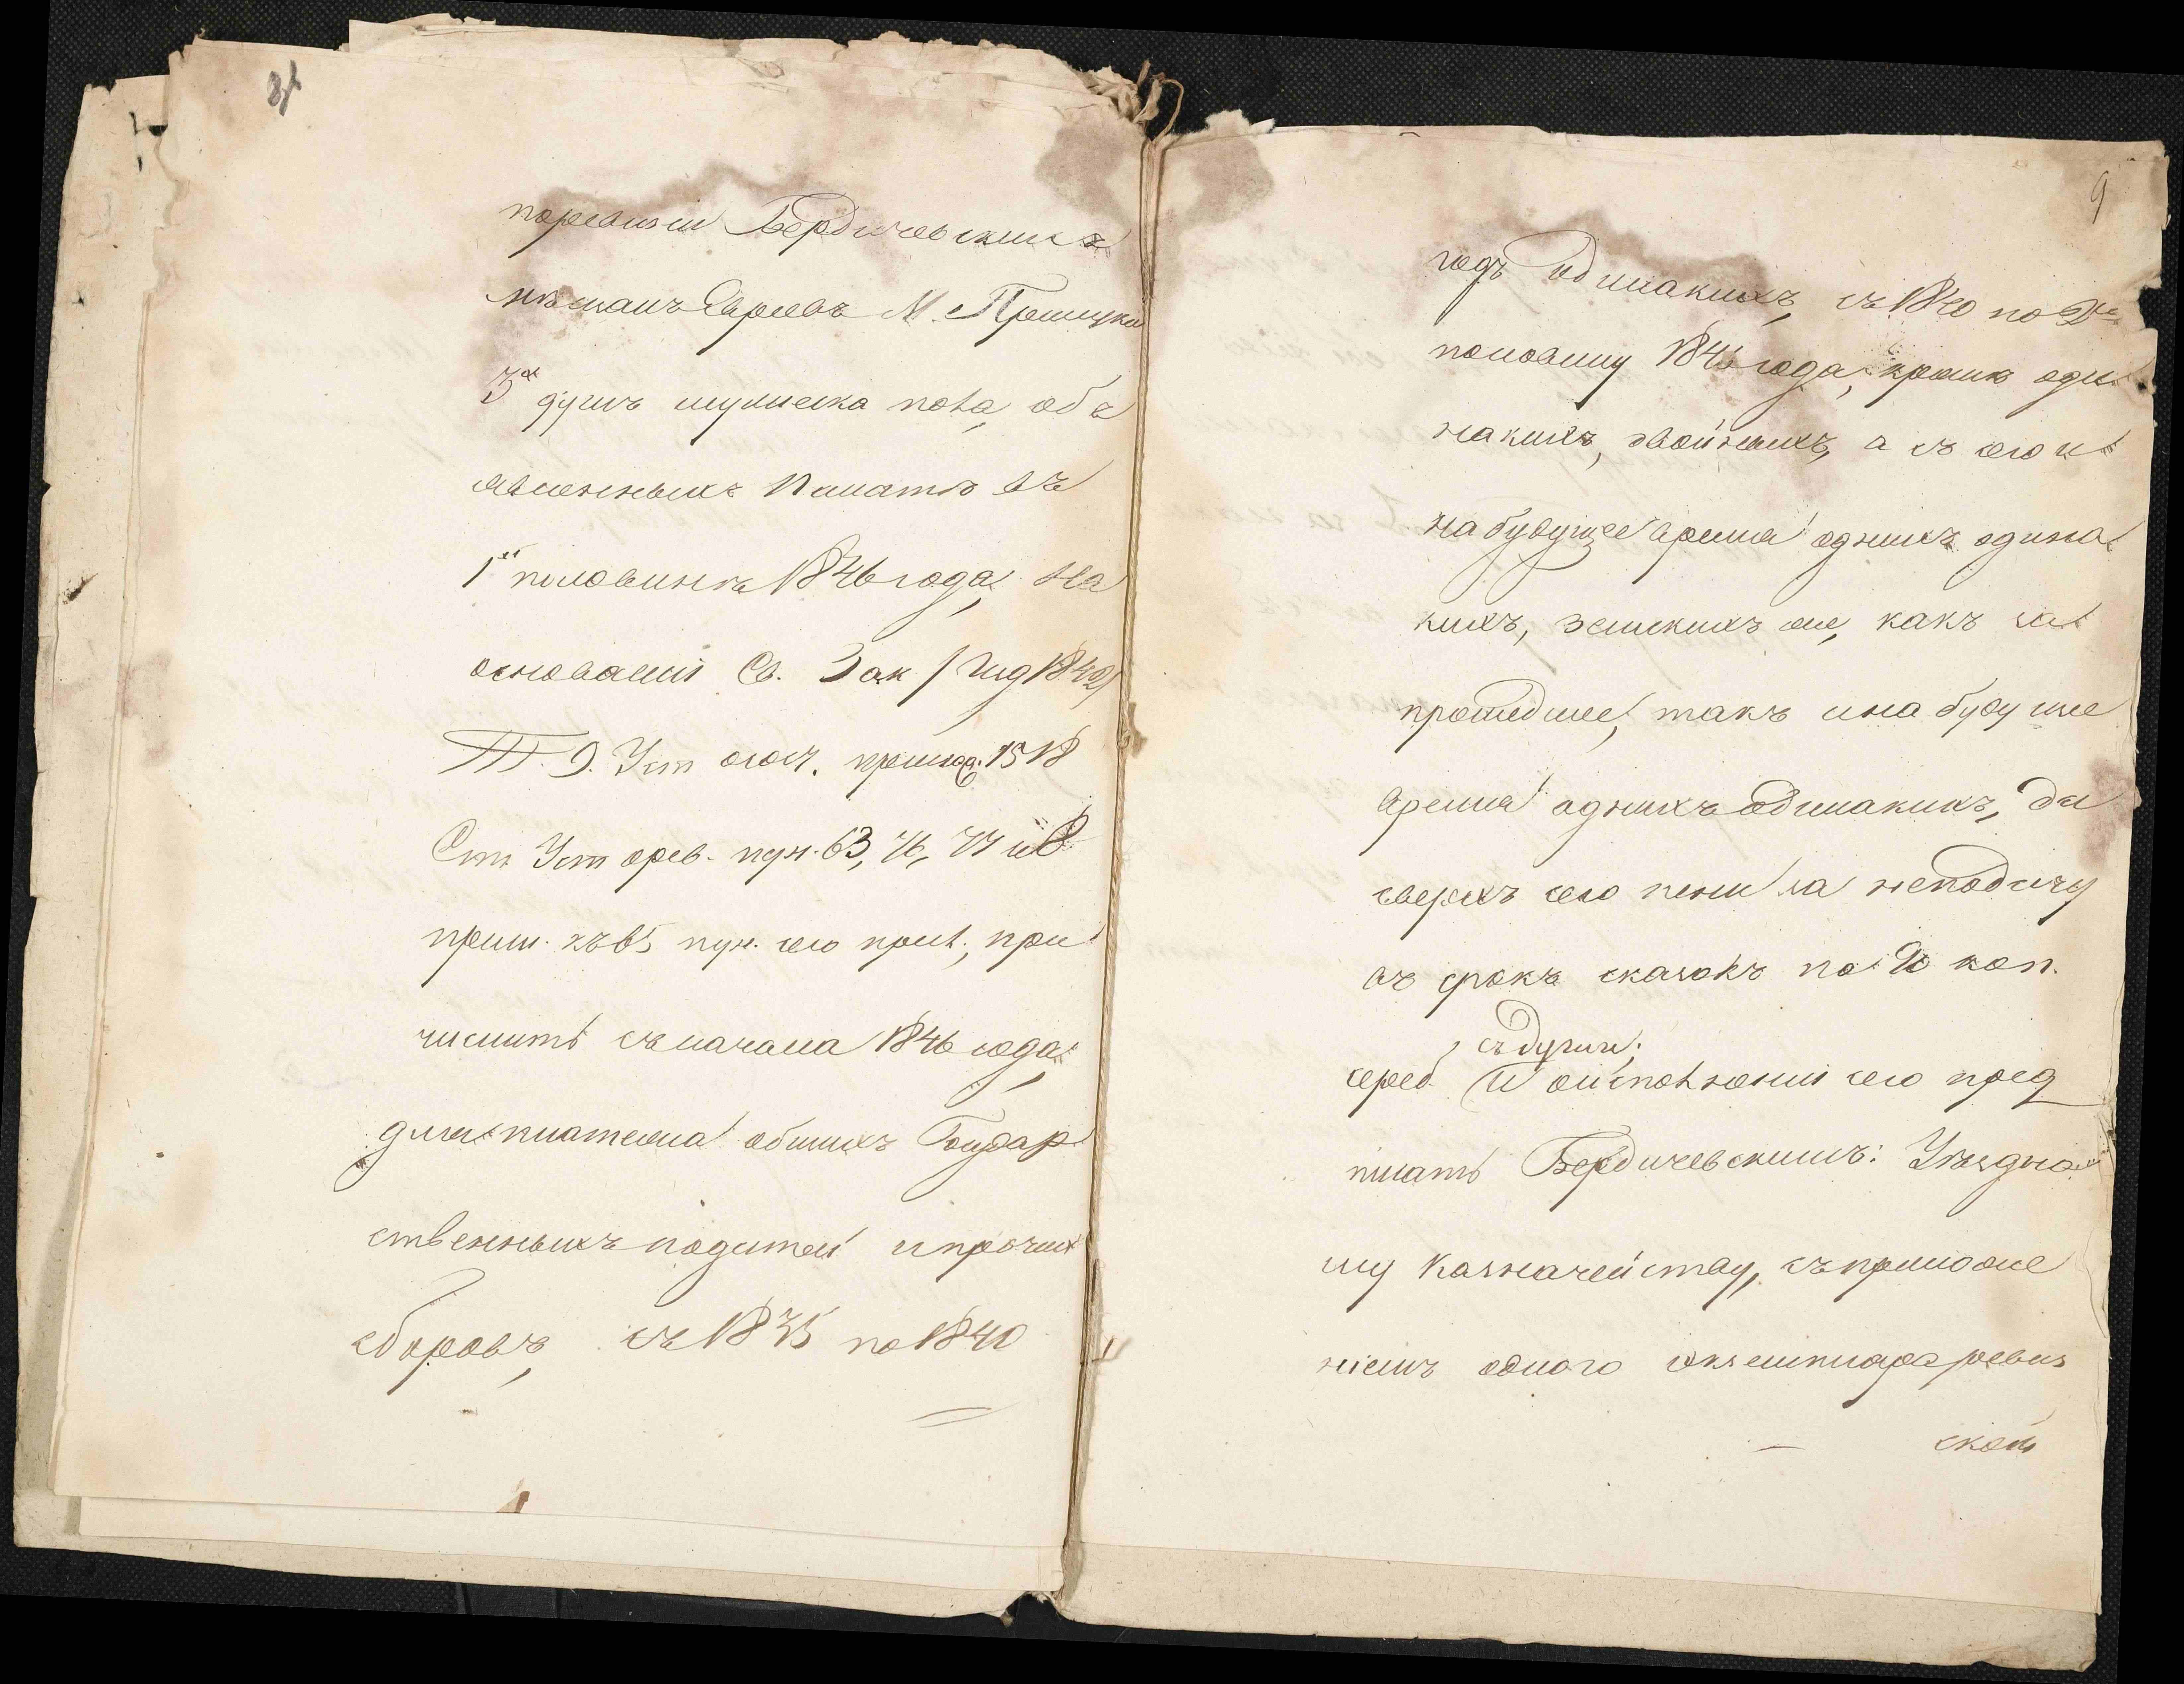 поревизіи Бердичевскимъ
мѣщанъ Евреевъ М. Прилуки
3х душъ мужеска пола, объ
явленныхъ Палатѣ въ
1й половинѣ 1846 года, на
основаніи Св. Зак / Изд 1842/
Т. 9. Уст о сост. прилож. 1518
Ст. Уст о рев. пун. 63, 76, 77 и
прим. къ 65 пун. сего прил., при
числить съ начала 1846 года,
для платежа общихъ Государ
ственныхъ податей и прочихъ
сборовъ, съ 1835 по 1840
9
годъ одинакихъ, съ 1840 по 2ю
половину 1846 года, кромѣ оди
накихъ, двойныхъ, а съ сего и
на будущее время однихъ одина
кихъ, земскихъ же, какъ за
прошедшее, такъ и на будущее
время однихъ одинакихъ, да
сверхъ сего пени за неподачу
въ срокъ сказокъ по 90 коп.
съ души;
сереб. и о исполненіи сего пред
писать Бердичевскимъ: Уѣздно
му Казначейству, съ приложе
ніемъ одного экземпляра ревиз
ской